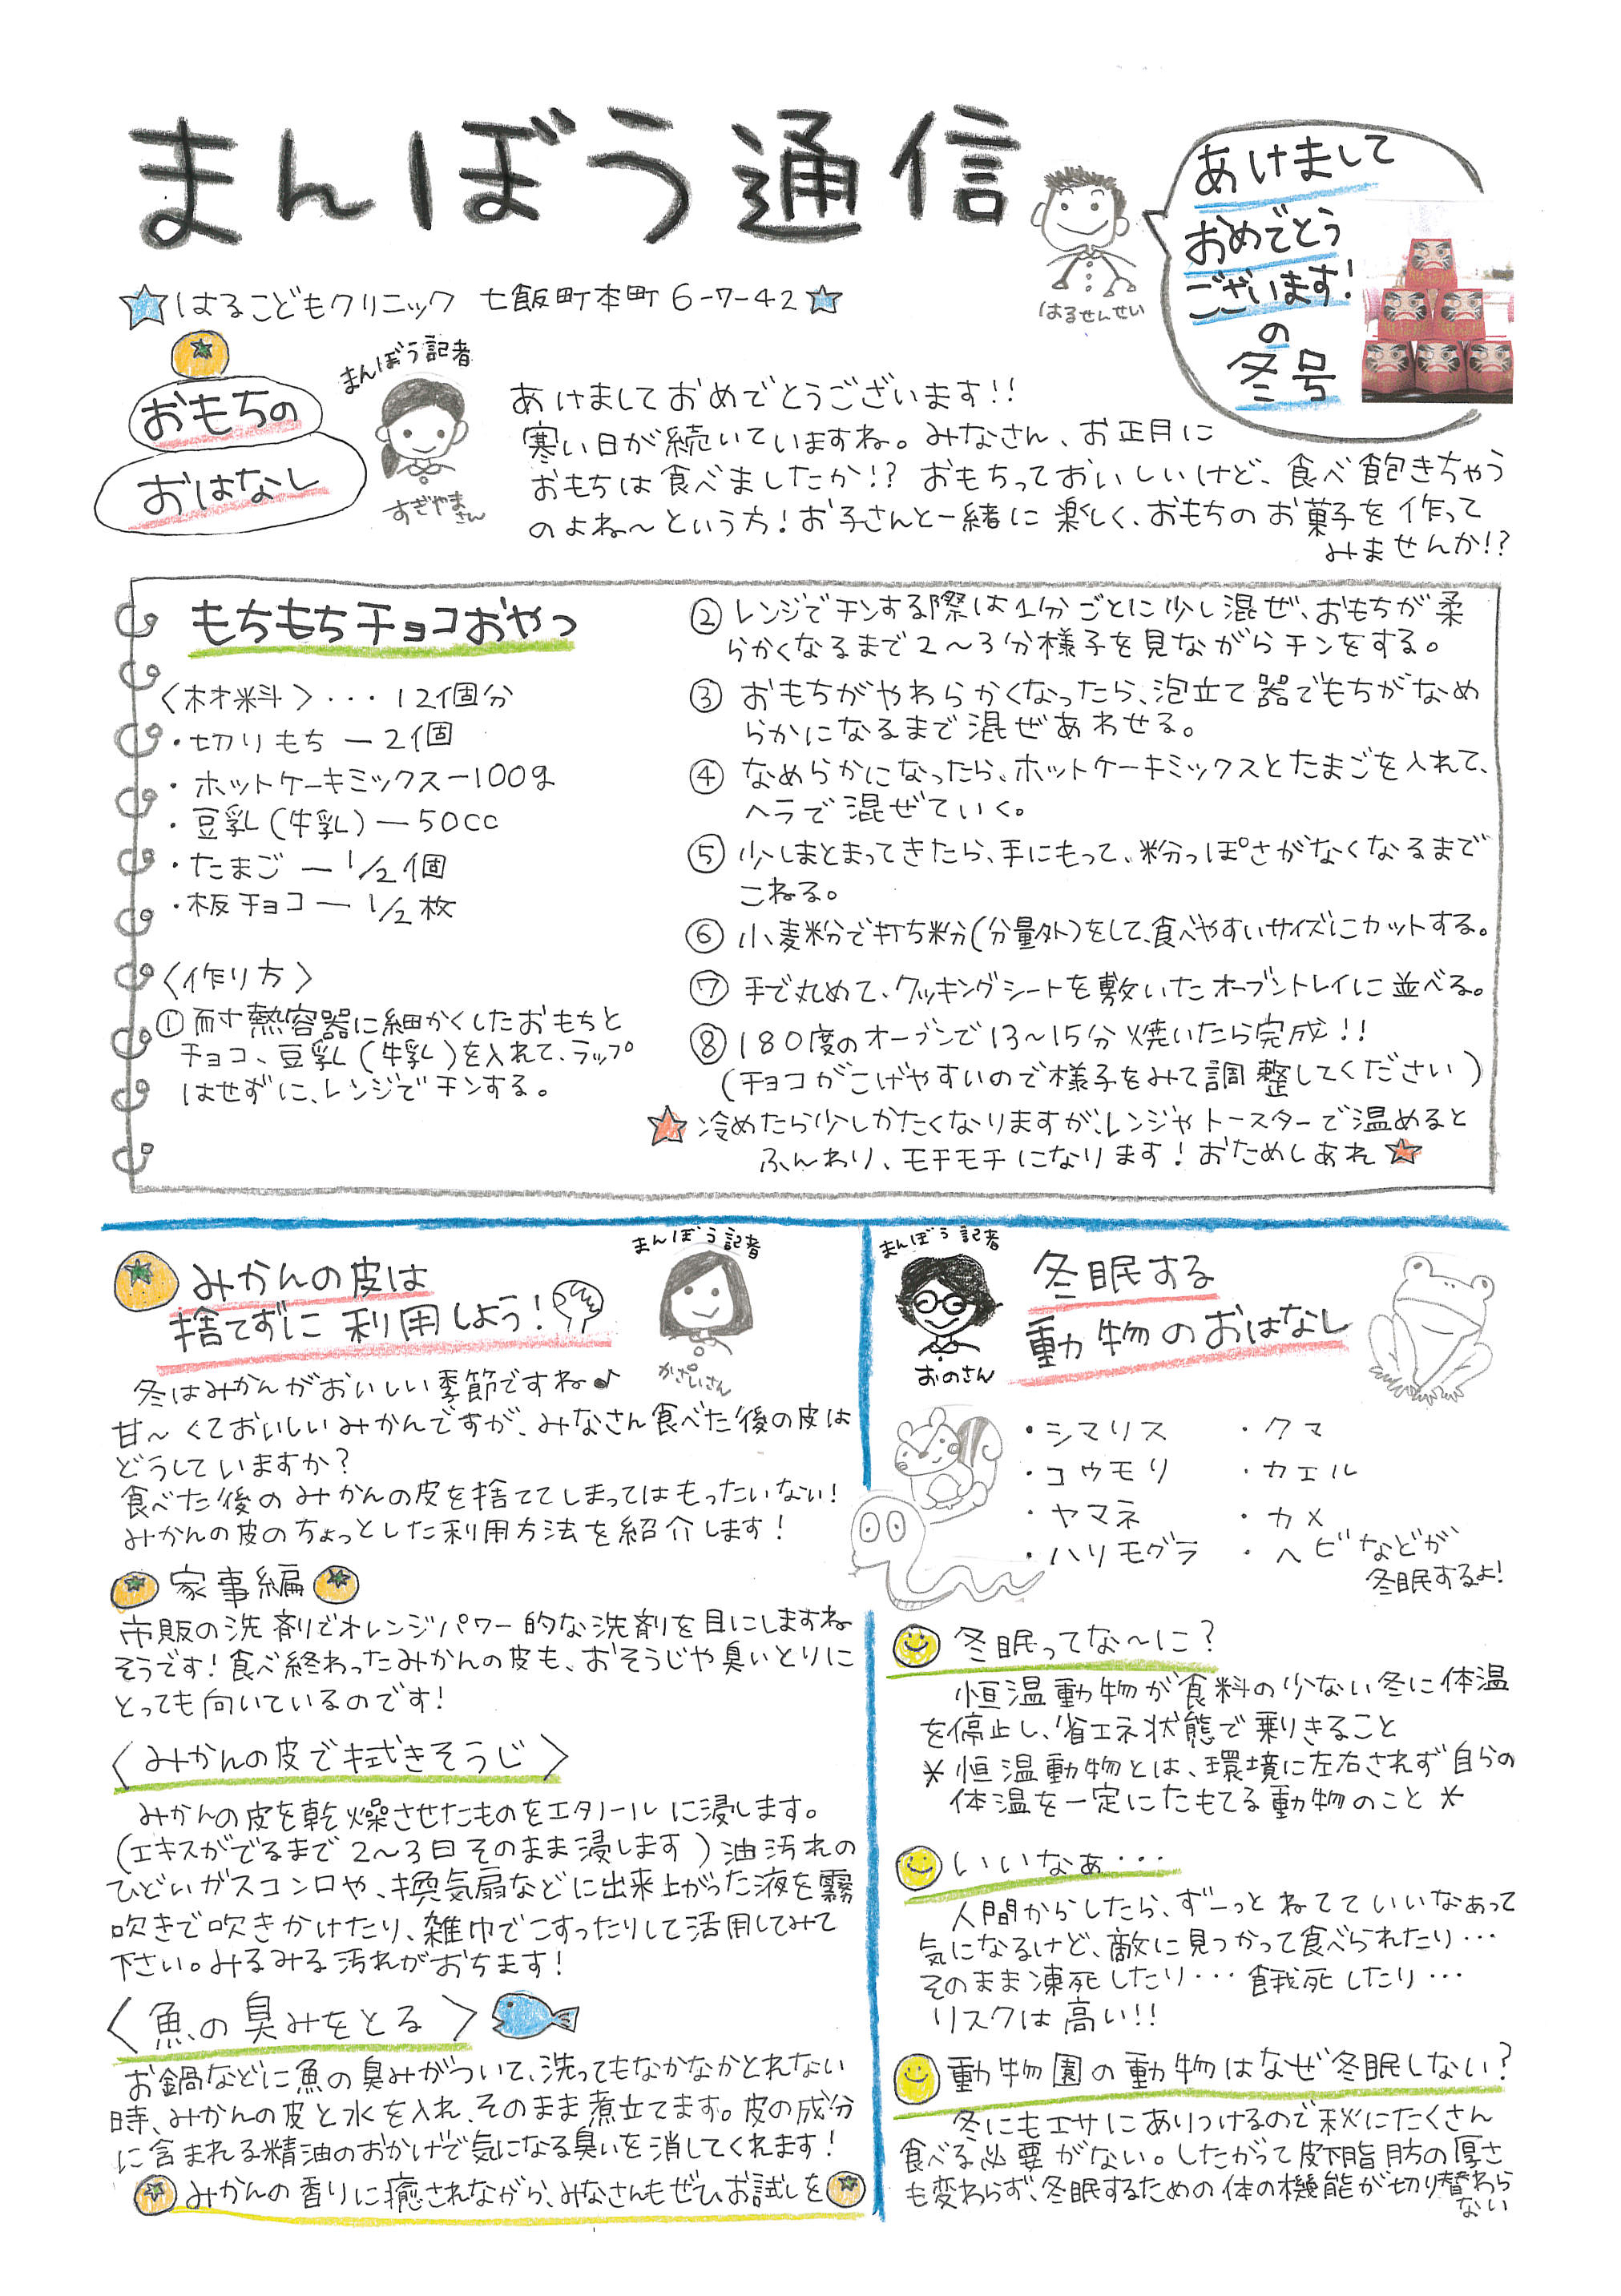 まんぼう通信
あけまして
おめでとう
ございます!
の
冬号
はるせんせい
はるこどもクリニック 七飯町本町6-7-42
おもちの
おはなし
まんぼう記者
すぎやまさん
あけましておめでとうございます!!
寒い日が続いていますね。みなさん、お正月に
おもちは食べましたか!? おもちっておいしいけど、食べ飽きちゃう
のよね〜という方!お子さんと一緒に楽しく、おもちのお菓子を作って
みませんか!?
もちもちチョコおやつ
〈材料〉・・・12個分
・切りもち ー2個
・ホットケーキミックスー100g
・豆乳(牛乳)ー50cc
・たまご ー 1/2個
・板チョコー 1/2枚
〈作り方〉
①耐熱容器に細かくしたおもちと
チョコ、豆乳(牛乳)を入れて、ラップ
はせずに、レンジでチンする。
②レンジでチンする際は1分ごとに少し混ぜ、おもちが柔
らかくなるまで2〜3分様子を見ながらチンをする。
③おもちがやわらかくなったら、泡立て器でもちがなめ
らかになるまで混ぜあわせる。
④なめらかになったら、ホットケーキミックスとたまごを入れて、
ヘラで混ぜていく。
⑤少しまとまってきたら、手にもって、粉っぽさがなくなるまで
こねる。
⑥小麦粉で打ち粉(分量外)をして、食べやすいサイズにカットする。
⑦手で丸めて、クッキングシートを敷いたオーブントレイに並べる。
⑧180度のオーブンで13〜15分焼いたら完成!!
(チョコがこげやすいので様子をみて調整してください)
冷めたら少しかたくなりますが、レンジやトースターで温めると
ふんわり、モチモチになります!おためしあれ
みかんの皮は
捨てずに利用しよう!
まんぼう記者
かさいさん
冬はみかんがおいしい季節ですね♪
甘〜くておいしいみかんですが、みなさん食べた後の皮は
どうしていますか?
食べた後のみかんの皮を捨ててしまってはもったいない!
みかんの皮のちょっとした利用方法を紹介します!
家事編
市販の洗剤でオレンジパワー的な洗剤を目にしますね
そうです!食べ終わったみかんの皮も、おそうじや臭いとりに
とっても向いているのです!
〈みかんの皮で拭きそうじ〉
みかんの皮を乾燥させたものをエタノールに浸します。
(エキスがでるまで2〜3日そのまま浸します)油汚れの
ひどいガスコンロや、換気扇などに出来上がった液を霧
吹きで吹きかけたり、雑巾でこすったりして活用してみて
下さい。みるみる汚れがおちます!
〈魚の臭みをとる〉
お鍋などに魚の臭みがついて、洗ってもなかなかとれない
時、みかんの皮と水を入れ、そのまま煮立てます。皮の成分
に含まれる精油のおかげで気になる臭いを消してくれます!
みかんの香りに癒されながら、みなさんもぜひお試しを
まんぼう記者
おのさん
冬眠する
動物のおはなし
・シマリス ・クマ
・コウモリ ・カエル
・ヤマネ ・カメ
・ハリモグラ ・ヘビなどが
冬眠するよ!
冬眠ってな〜に?
恒温動物が食料の少ない冬に体温
を停止し、省エネ状態で乗りきること
*恒温動物とは、環境に左右されず自らの
体温を一定にたもてる動物のこと*
いいなぁ・・・
人間からしたら、ずーっとねてていいなぁって
気になるけど、敵に見つかって食べられたり・・・
そのまま凍死したり・・・餓死したり・・・
リスクは高い!!
動物園の動物はなぜ冬眠しない?
冬にもエサにありつけるので秋にたくさん
食べる必要がない。したがって皮下脂肪の厚さ
も変わらず、冬眠するための体の機能が切り替わら
ない